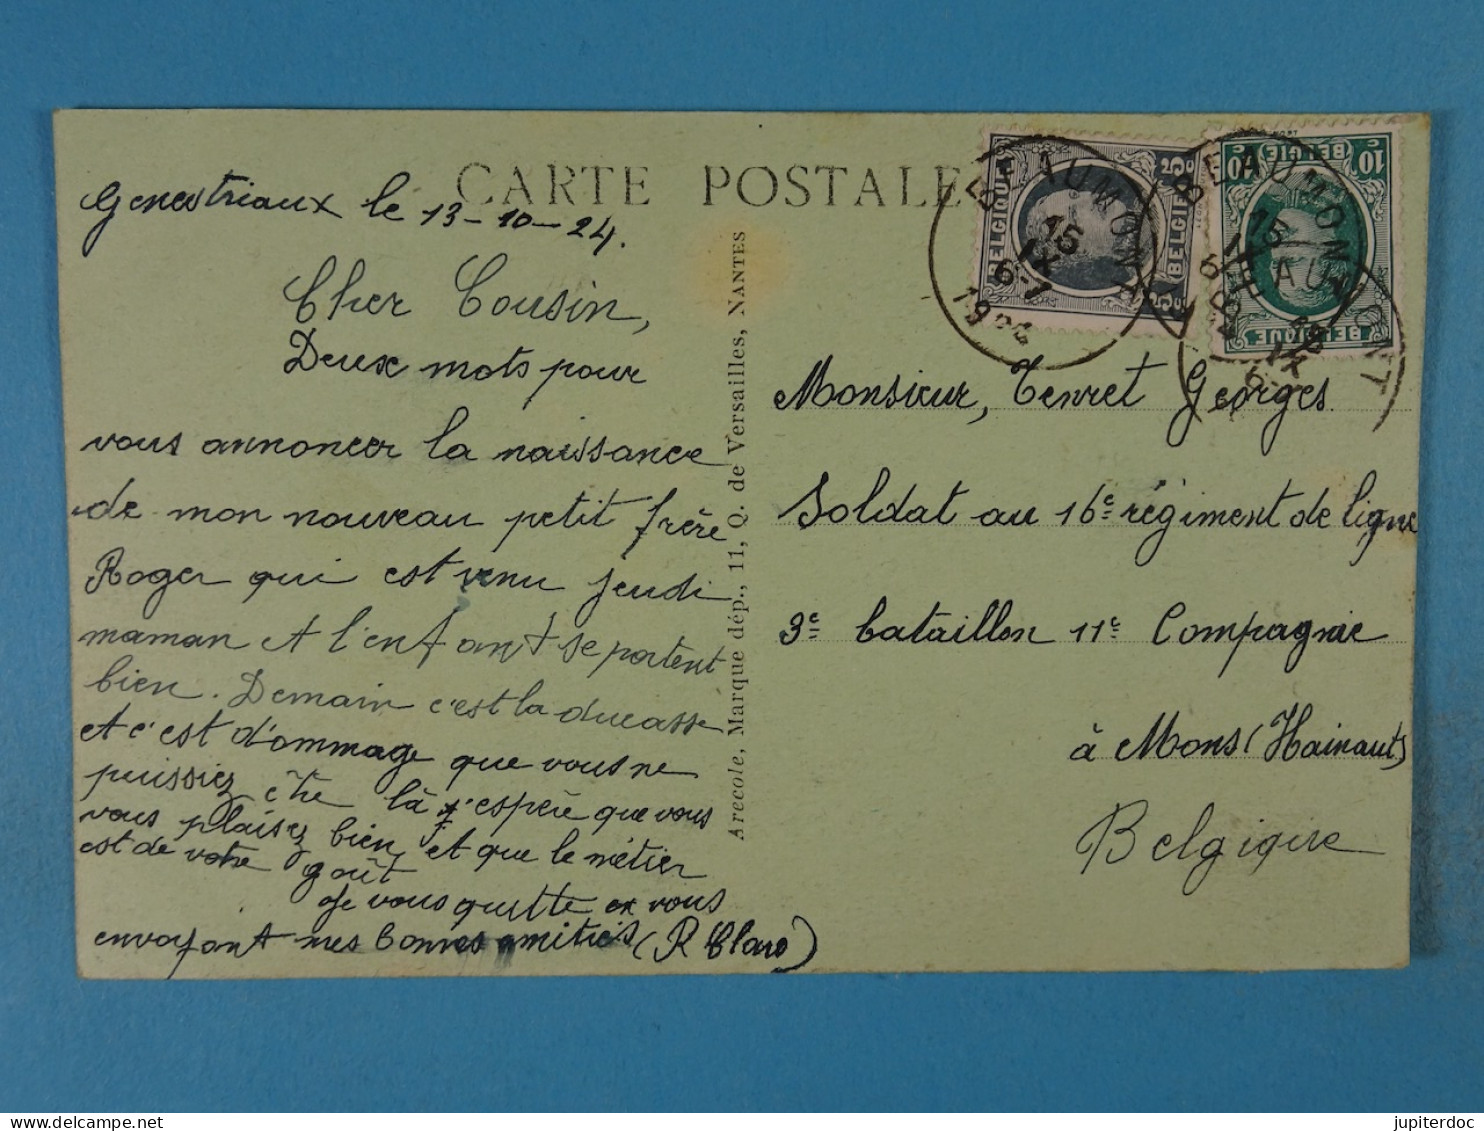 CARTE POSTALE
Genestriaux le 13-10-24.
Cher Cousin,
Deux mots pour
vous annoncer la naissance
de mon nouveau petit frère
Roger qui est venu jeudi
maman et l'enfant se portent
bien. Demain c'est la ducasse
et c'est d'ommage que vous ne
puissiez être là j'espère que vous
vous plaisez bien et que le métier
est de votre goût
Je vous quitte en vous
envoyant mes bonnes amitiés (R Claro)
Arecole, Marque dép., 11, Q. de Versailles, NANTES
BELGIQUE
BELGIË
BEAUMONT
15
IX
6-7
1924
10 C
BELGIË
BELGIQUE
BEAUMONT
15
BEAUMONT
Monsieur, Tenret Georges
Soldat au 16e régiment de ligne
3e bataillon 11e Compagnie
à Mons (Hainaut)
Belgique
jupiterdoc
delcampe.net